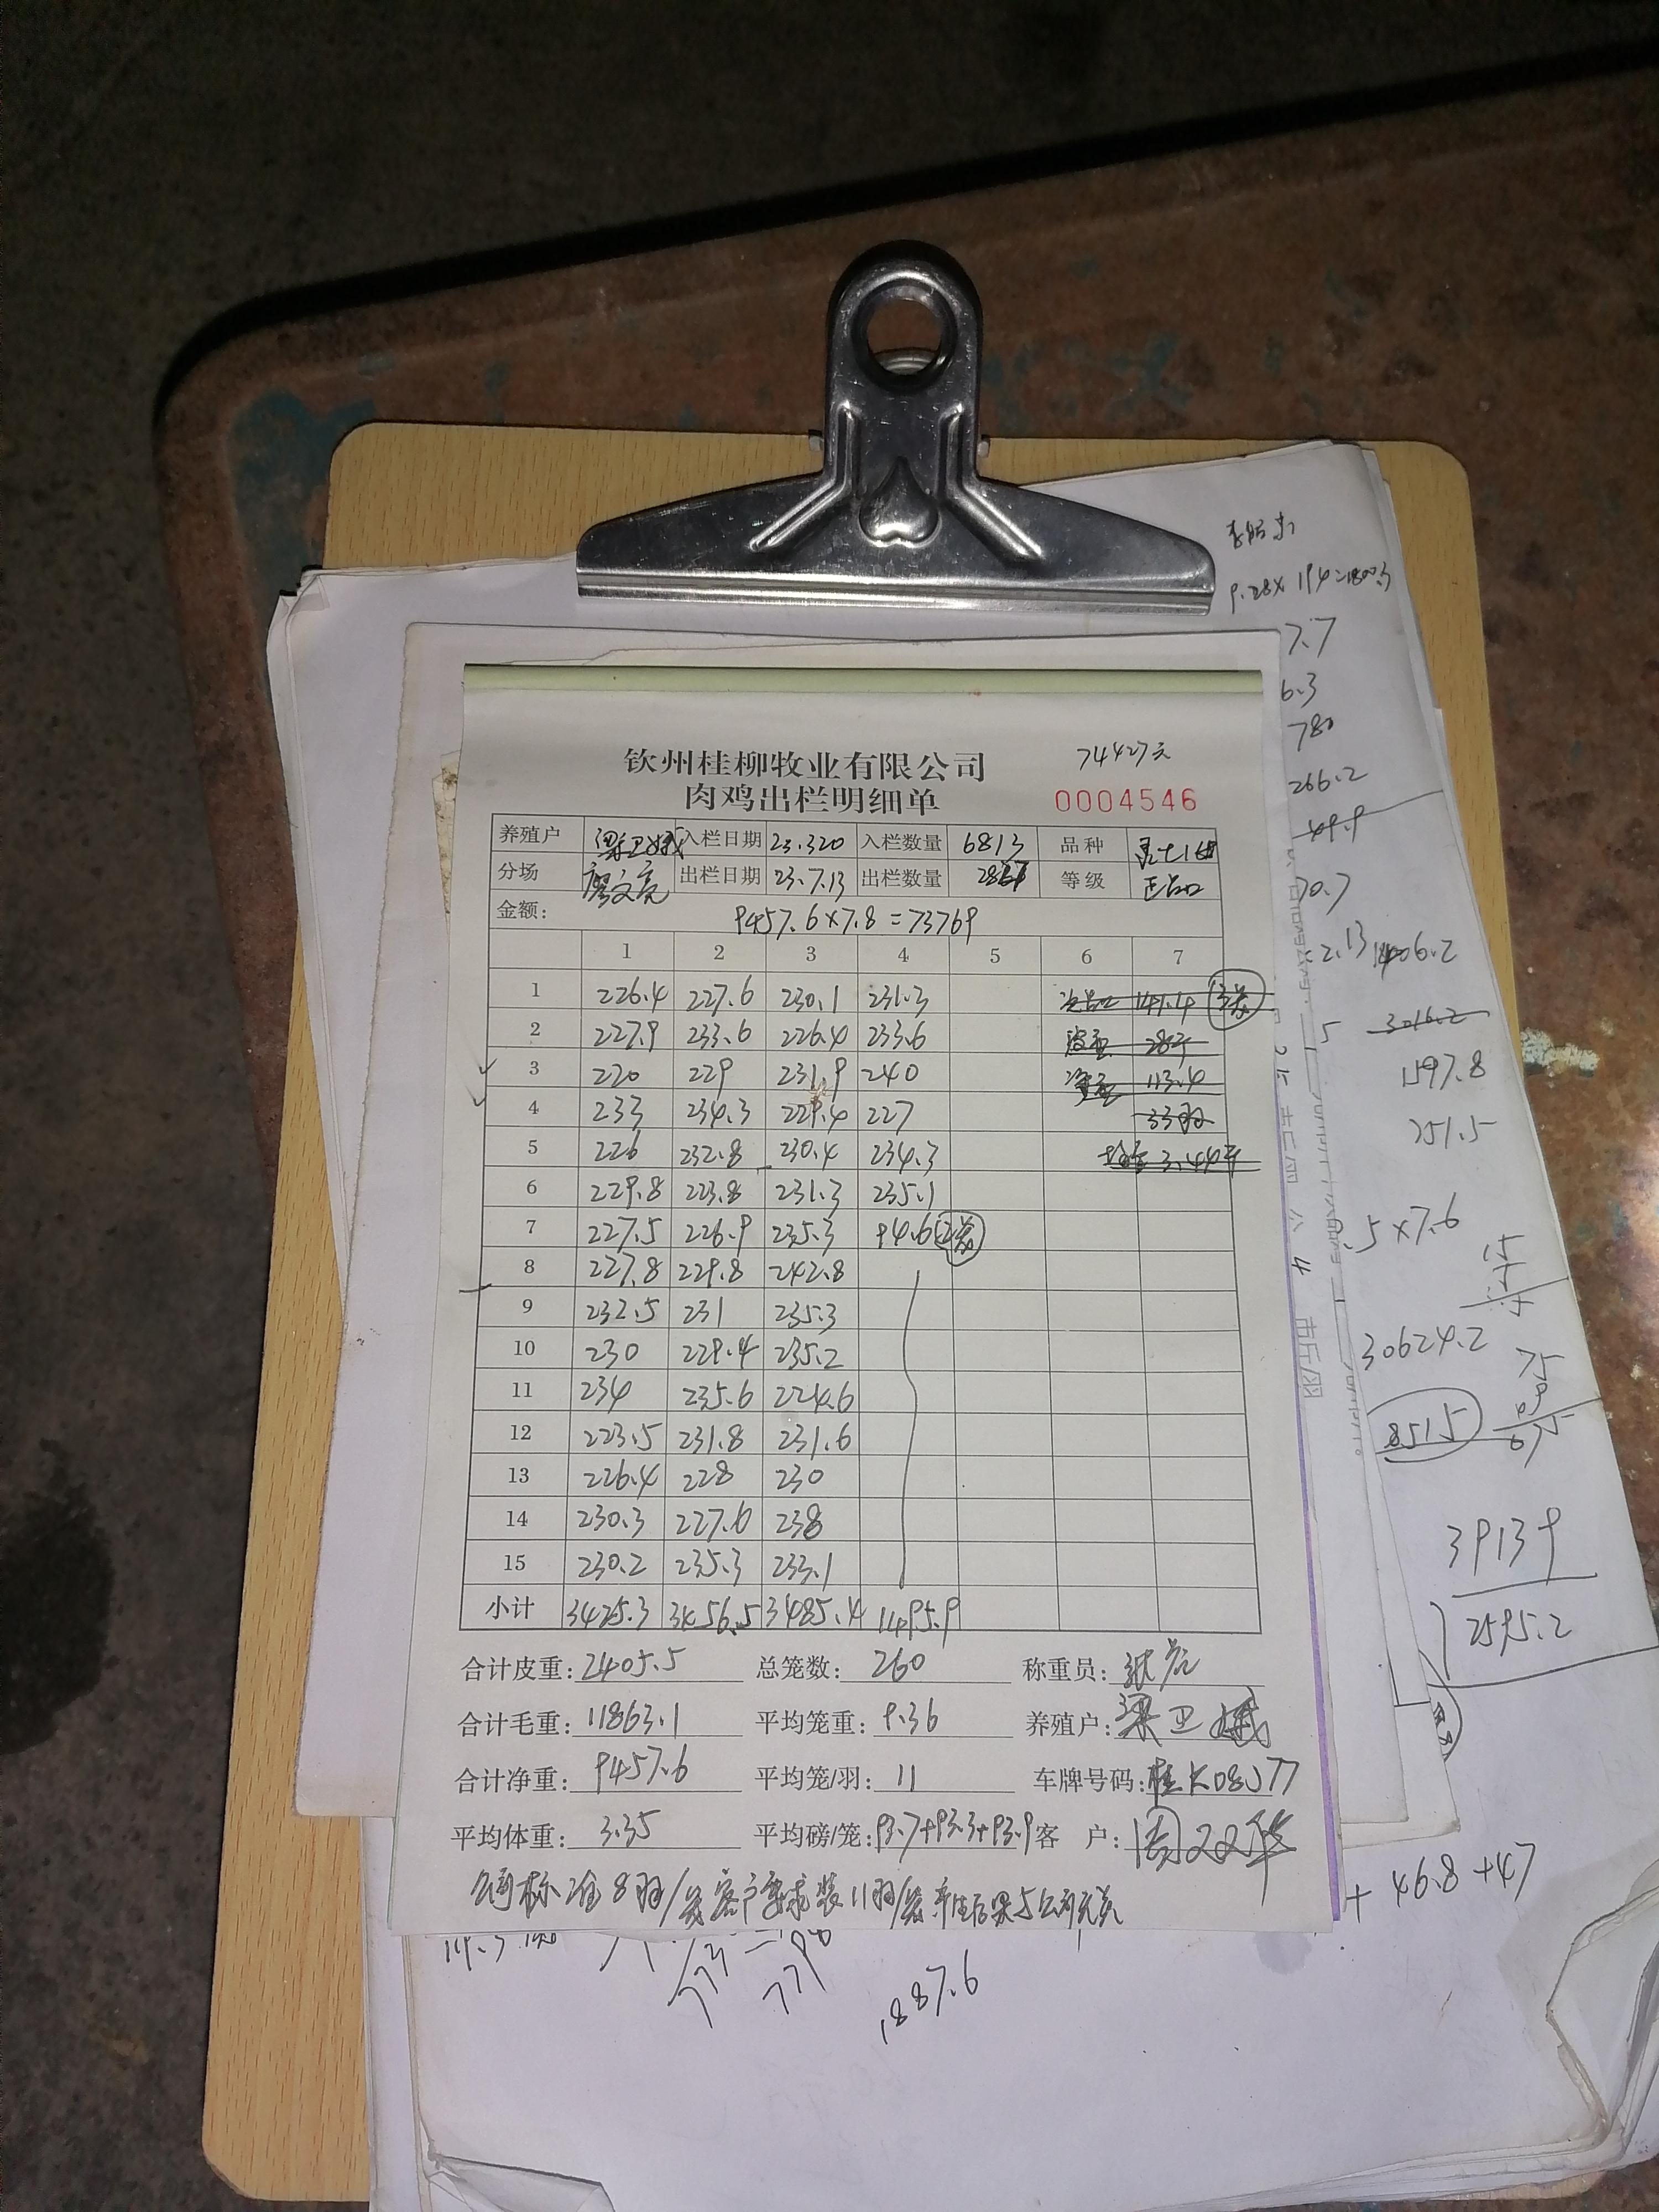 74427元
钦州桂柳牧业有限公司
肉鸡出栏明细单
0004546
养殖户 梁卫娥 入栏日期 23.320 入栏数量 6813 品种
分场 廖文亮 出栏日期 23.7.13 出栏数量 等级 正品
金额: 9457.6×7.8=73769
1 2 3 4 5 6 7
1 226.4 227.6 230.1 231.3 次品 141.4 (3笼)
2 227.9 233.6 226.4 233.6 皮重 28斤
3 220 229 231.9 240 净重 113.4
4 233 234.3 229.4 227 33羽
5 226 232.8 230.4 234.3 均重 3.44斤
6 229.8 223.8 231.3 235.1
7 227.5 226.9 235.3 94.6 (2笼)
8 227.8 229.8 242.8
9 232.5 231 235.3
10 230 229.4 235.2
11 234 235.6 224.6
12 223.5 231.8 231.6
13 226.4 228 230
14 230.3 227.6 238
15 230.2 235.3 233.1
小计 3425.3 3456.5 3485.4 1495.9
合计皮重: 2405.5 总笼数: 260 称重员:
合计毛重: 11863.1 平均笼重: 9.36 养殖户: 梁卫娥
合计净重: 9457.6 平均笼/羽: 11 车牌号码:
平均体重: 3.35 平均磅/笼: 93.7+93.3+93.9 客 户:
标准8羽/笼客户要求装11羽/笼
9.28×194=1800.3
7.7
6.3
780
266.2
49.9
70.7
2.13
1406.2
5
3016.2
1597.8
251.5
.5×7.6
30624.2
75
8515
675
39139
2595.2
+ 46.8 +47
779
1887.6